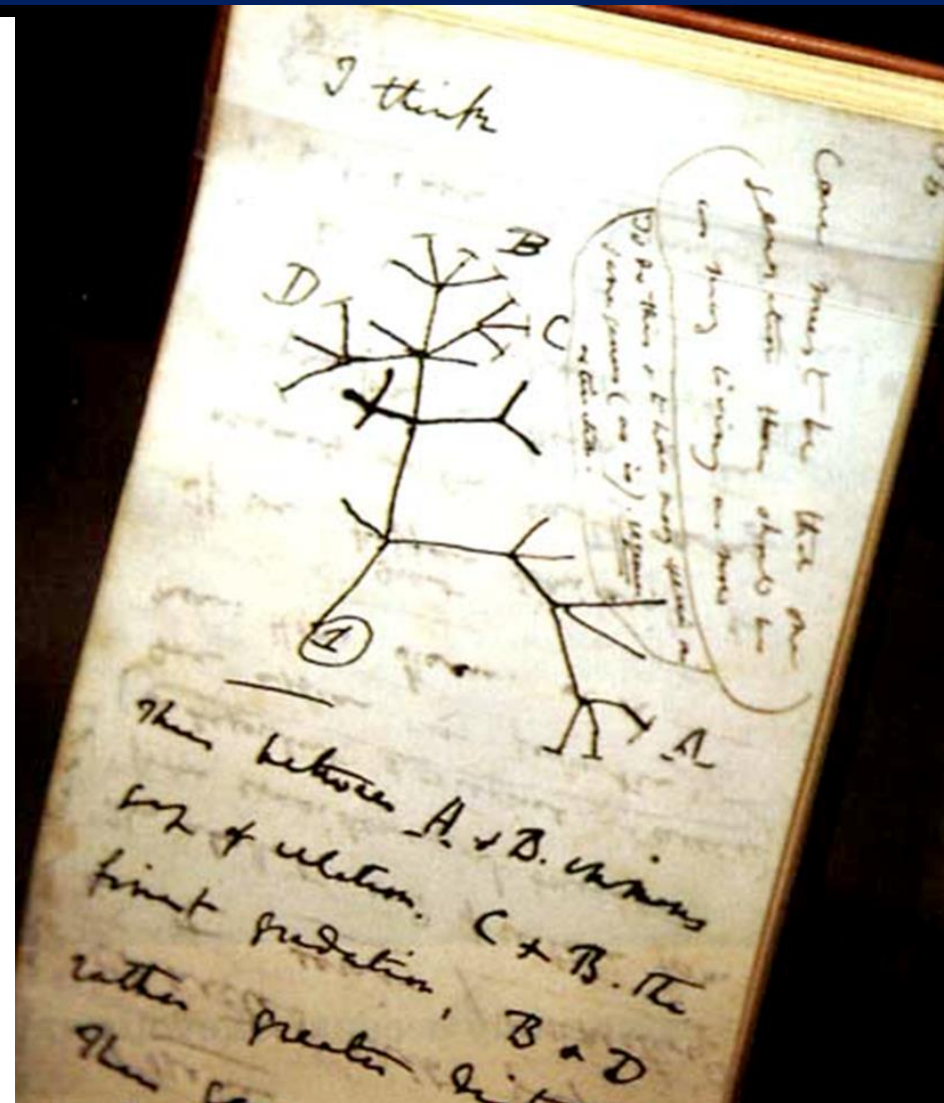 I think
B
D
C
A
1
Case must be that one
generation then should be
as many living as now
To do this & to have many species in
same genus (as is). requires
extinction.
Thus between A. & B. immens
gap of relation. C & B. The
finest gradation, B & D
rather greater
Thus